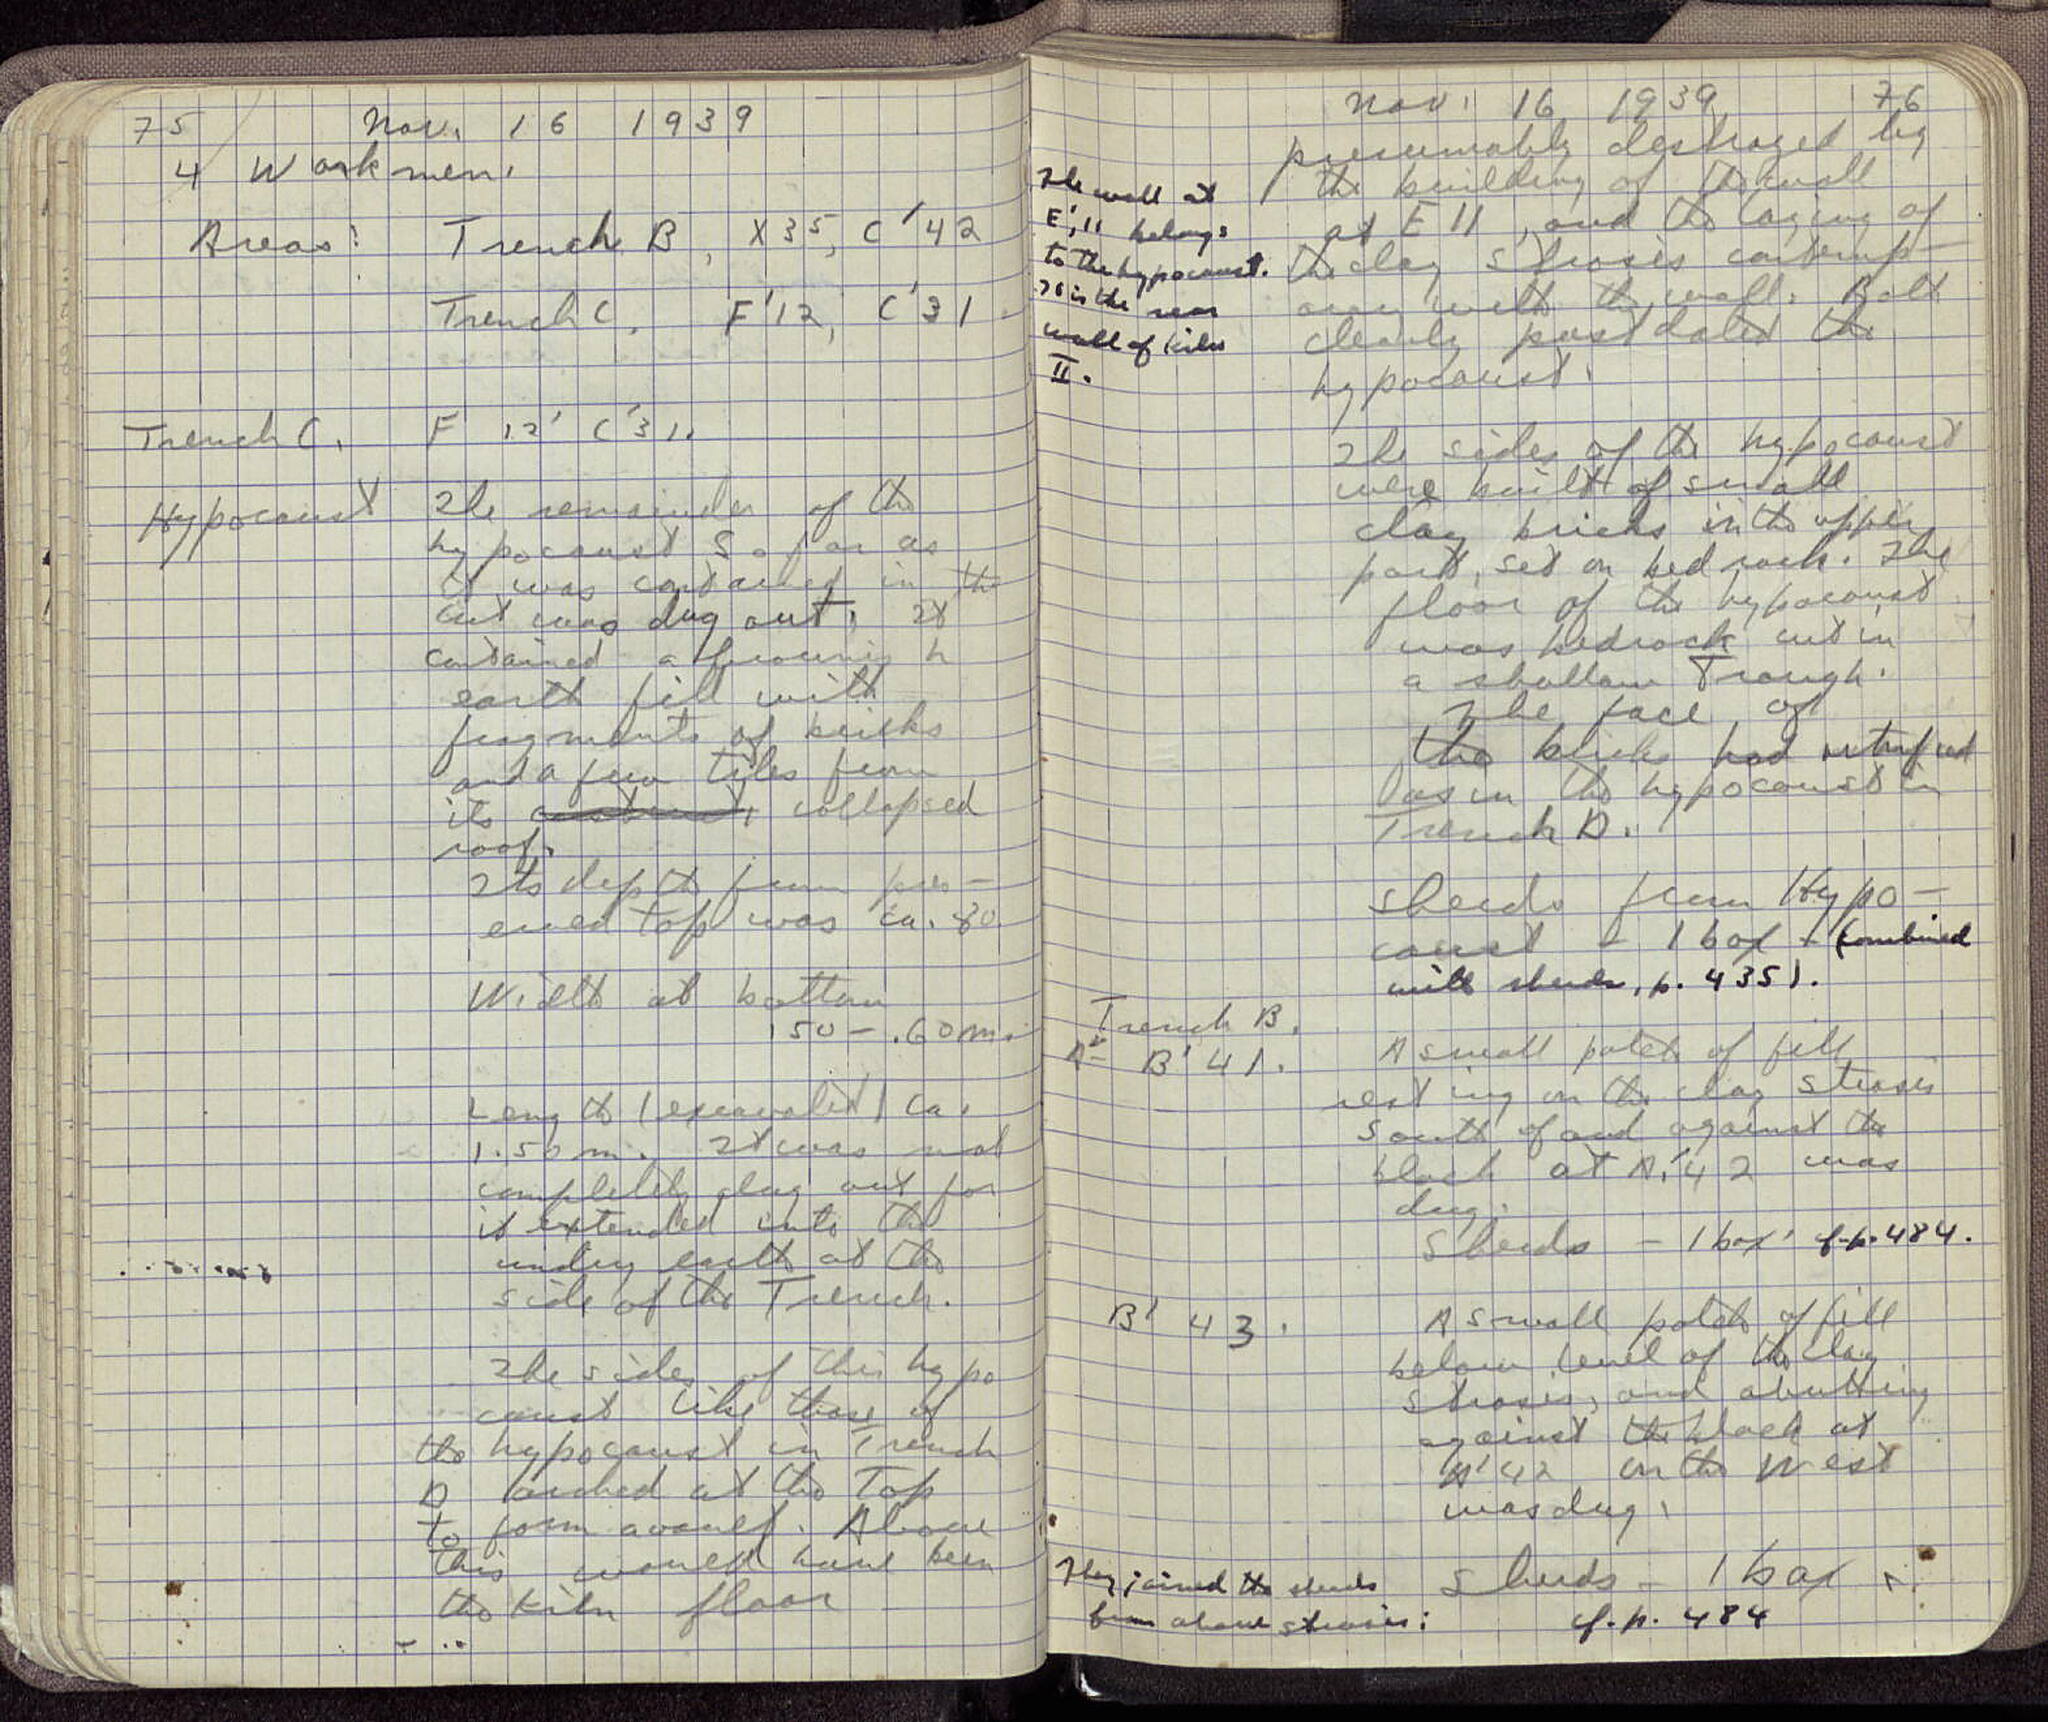 75 Nov. 16 1939
4 Workmen.
Areas: Trench B, X35, C'42
Trench C, F'12, C'31
Trench C. F 12' C'31.
Hypocaust The remainder of the
hypocaust so far as
it was contained in the
cut was dug out. It
contained a brownish
earth fill with
fragments of bricks
and a few tiles from
its collapsed
roof.
Its depth from pres-
erved top was ca. 80
Width at bottom
.50 - .60 m.
Length (excavated) ca.
1.50 m. It was not
completely dug out for
it extended into the
undug earth at the
side of the Trench.
The sides of this hypo
caust like those of
the hypocaust in Trench
D arched at the Top
to form a vault. Above
this would have been
the kiln floor
Nov. 16 1939 76
presumably destroyed by
the building of the wall
at E 11, and the laying of
the clay strosis contemp-
orary with the wall. Both
clearly post dated the
hypocaust.
The wall at
E', 11 belongs
to the hypocaust.
It is the rear
wall of kiln
II.
The sides of the hypocaust
were built of small
clay bricks in the upper
part, set on bedrock. The
floor of the hypocaust
was bedrock cut in
a shallow Trough.
The face of
the bricks had vitrified
as in the hypocaust in
Trench D.
Sherds from Hypo-
caust - 1 box - (combined
with sherds, p. 435).
Trench B.
A'- B' 41. A small patch of fill
resting on the clay strosis
South of and against the
block at A'42 was
dug.
Sherds - 1 box' cf. p. 484.
B' 43. A small patch of fill
below level of the clay
strosis, and abutting
against the block at
A'42 on the West
was dug.
Sherds - 1 box
They joined the sherds
from above strosis: cf. p. 484